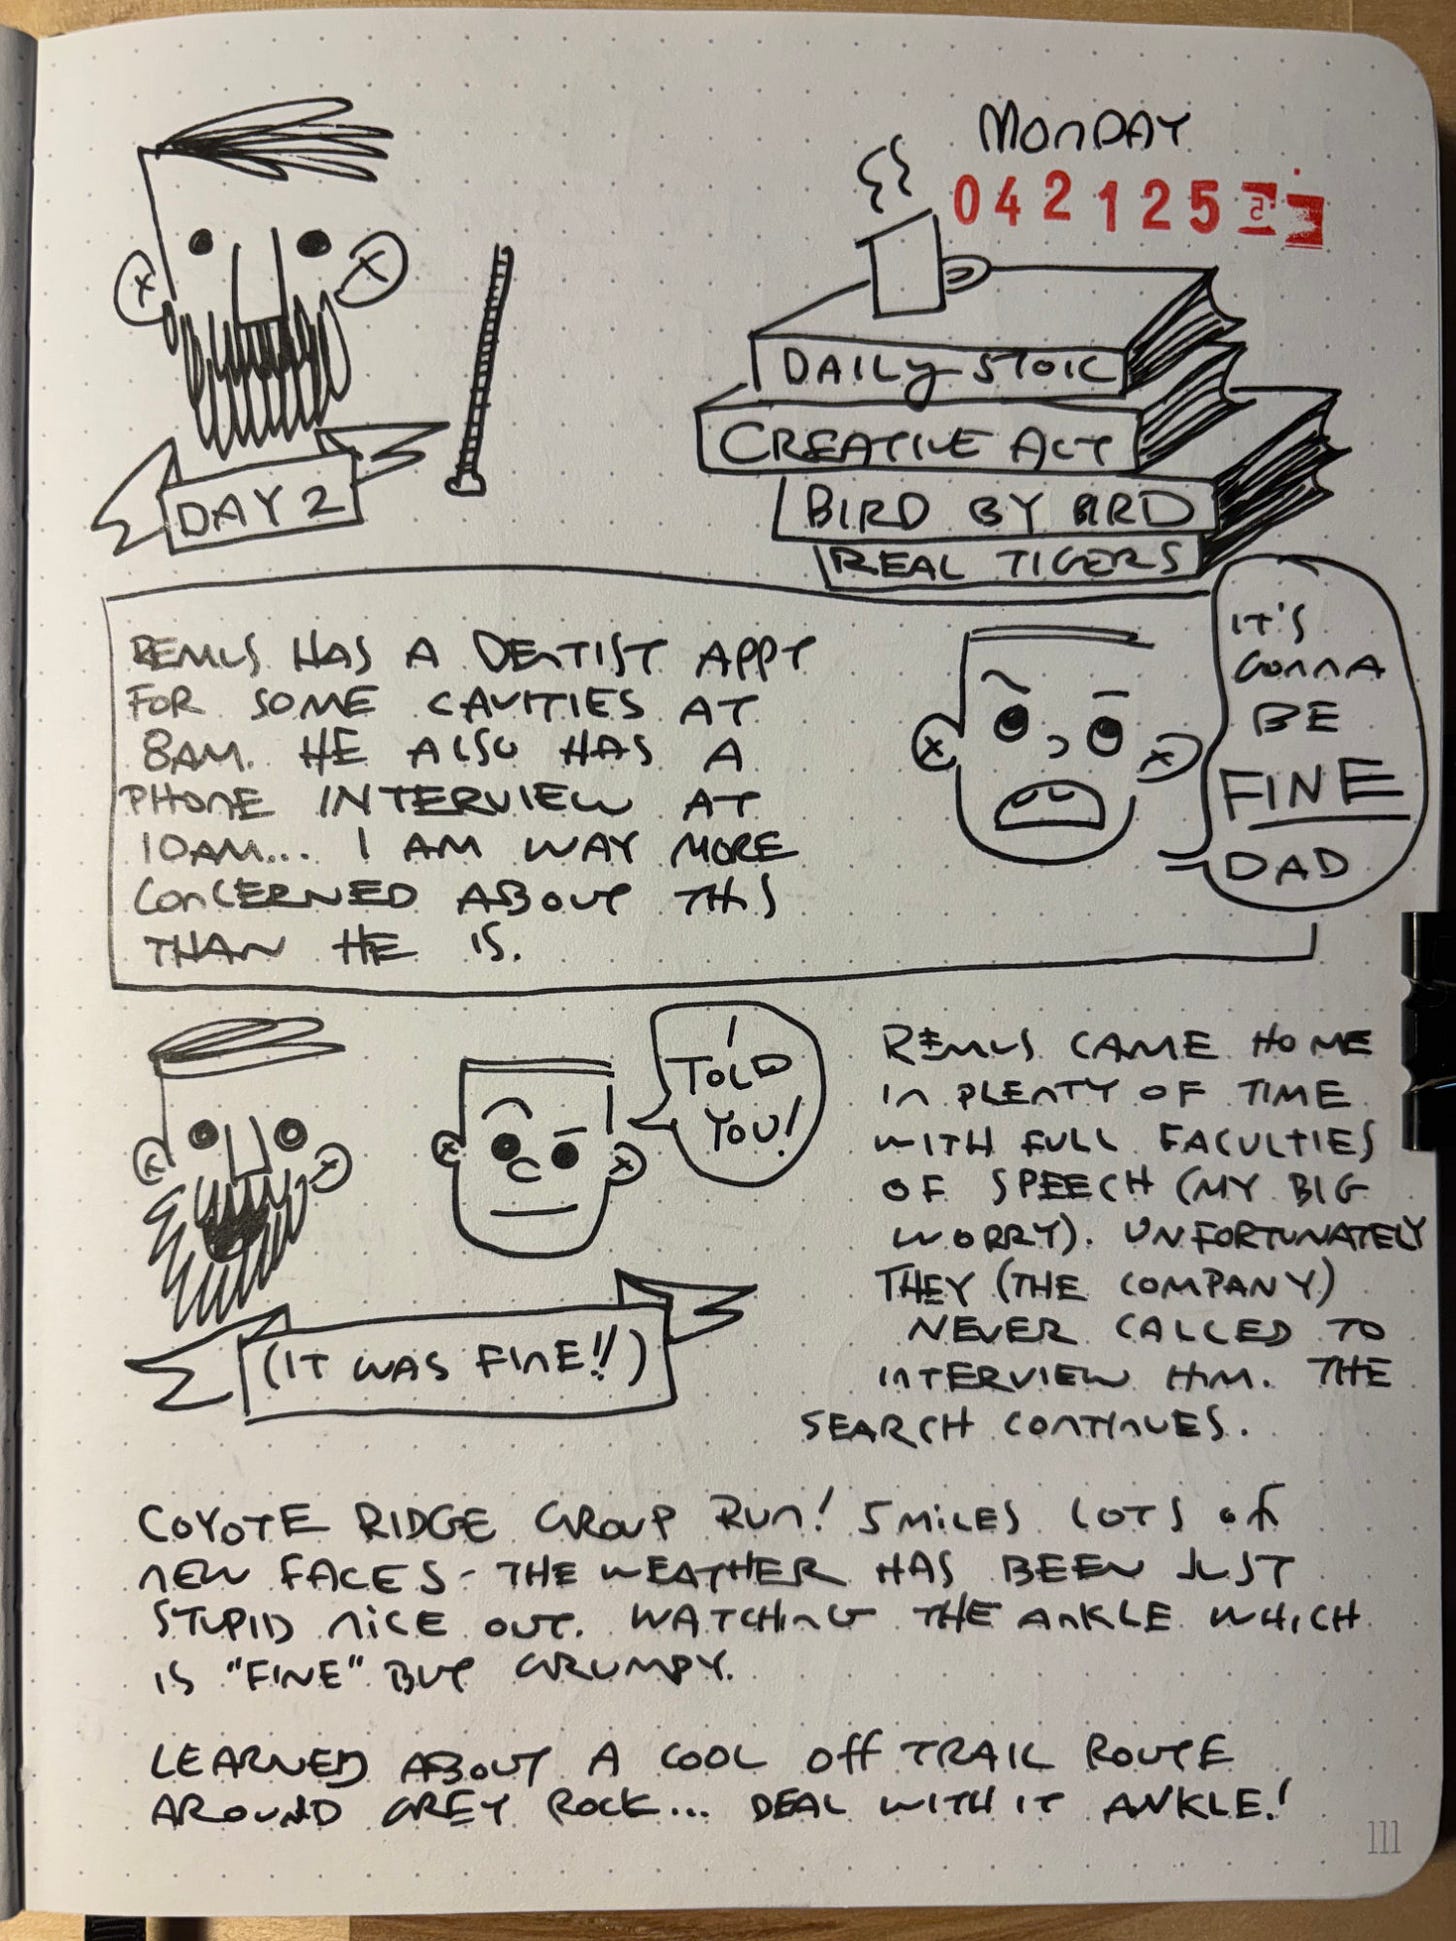 MONDAY
042125
DAILY STOIC
CREATIVE ACT
BIRD BY BIRD
REAL TIGERS
DAY 2
REMUS HAS A DENTIST APPT
FOR SOME CAVITIES AT
8AM. HE ALSO HAS A
PHONE INTERVIEW AT
10AM... I AM WAY MORE
CONCERNED ABOUT THIS
THAN HE IS.
IT'S
GONNA
BE
FINE
DAD
I
TOLD
YOU!
(IT WAS FINE!!)
REMUS CAME HOME
IN PLENTY OF TIME
WITH FULL FACULTIES
OF SPEECH (MY BIG
WORRY). UNFORTUNATELY
THEY (THE COMPANY)
NEVER CALLED TO
INTERVIEW HIM. THE
SEARCH CONTINUES.
COYOTE RIDGE GROUP RUN! 5 MILES LOTS OF
NEW FACES - THE WEATHER HAS BEEN JUST
STUPID NICE OUT. WATCHING THE ANKLE WHICH
IS "FINE" BUT GRUMPY.
LEARNED ABOUT A COOL OFF TRAIL ROUTE
AROUND GREY ROCK... DEAL WITH IT ANKLE!
111